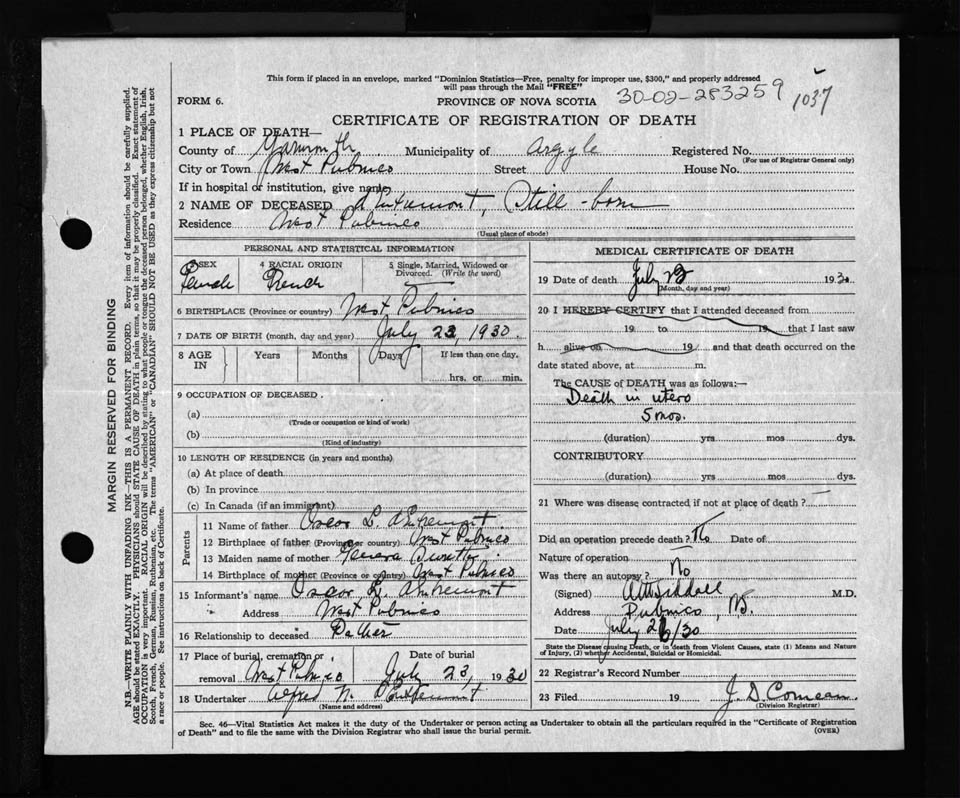 This form if placed in an envelope, marked "Dominion Statistics—Free, penalty for improper use, $300," and properly addressed
will pass through the Mail "FREE"
30-02-283259 1037
FORM 6. PROVINCE OF NOVA SCOTIA
CERTIFICATE OF REGISTRATION OF DEATH
1 PLACE OF DEATH—
County of Yarmouth Municipality of Argyle Registered No.
(For use of Registrar General only)
City or Town West Pubnico Street House No.
If in hospital or institution, give name
2 NAME OF DECEASED d'Entremont, Still-born
Residence West Pubnico
(Usual place of abode)
PERSONAL AND STATISTICAL INFORMATION
3 SEX 4 RACIAL ORIGIN 5 Single, Married, Widowed or
Divorced. (Write the word)
Female French
6 BIRTHPLACE (Province or country) West Pubnico
7 DATE OF BIRTH (month, day and year) July 23, 1930.
8 AGE IN Years Months Days If less than one day.
hrs. or min.
9 OCCUPATION OF DECEASED.
(a)
(Trade or occupation or kind of work)
(b)
(Kind of industry)
10 LENGTH OF RESIDENCE (in years and months)
(a) At place of death
(b) In province
(c) In Canada (if an immigrant)
Parents
11 Name of father Oscar L. d'Entremont
12 Birthplace of father (Province or country) West Pubnico
13 Maiden name of mother
14 Birthplace of mother (Province or country) West Pubnico
15 Informant's name Oscar L. d'Entremont
Address West Pubnico
16 Relationship to deceased Father
17 Place of burial, cremation or removal West Pubnico Date of burial July 23, 1930
18 Undertaker Alfred N. d'Entremont
(Name and address)
MEDICAL CERTIFICATE OF DEATH
19 Date of death July 23 1930
(Month, day and year)
20 I HEREBY CERTIFY that I attended deceased from
19 to 19 that I last saw
h alive on 19 and that death occurred on the
date stated above, at m.
The CAUSE OF DEATH was as follows:—
Death in utero
5 mos.
(duration) yrs mos dys.
CONTRIBUTORY
(duration) yrs mos dys.
21 Where was disease contracted if not at place of death?
Did an operation precede death? No Date of
Nature of operation
Was there an autopsy? No
(Signed) Siddall M.D.
Address Pubnico, NS.
Date July /30
State the Disease causing Death, or in death from Violent Causes, state (1) Means and Nature
of Injury, (2) whether Accidental, Suicidal or Homicidal.
22 Registrar's Record Number
23 Filed 19 J. D Comeau
(Division Registrar)
Sec. 46—Vital Statistics Act makes it the duty of the Undertaker or person acting as Undertaker to obtain all the particulars required in the "Certificate of Registration
of Death" and to file the same with the Division Registrar who shall issue the burial permit. (OVER)
MARGIN RESERVED FOR BINDING
N.B.—WRITE PLAINLY WITH UNFADING INK—THIS IS A PERMANENT RECORD. Every item of information should be carefully supplied.
AGE should be stated EXACTLY. PHYSICIANS should STATE CAUSE OF DEATH in plain terms, so that it may be properly classified. Exact statement of
OCCUPATION is very important. RACIAL ORIGIN will be described by stating to what people or tongue the deceased person belonged, whether English, Irish,
Scotch, French, German, Russian, Ruthenian, etc. The terms "AMERICAN" or "CANADIAN" SHOULD NOT BE USED as they express citizenship but not
a race or people. See instructions on back of Certificate.